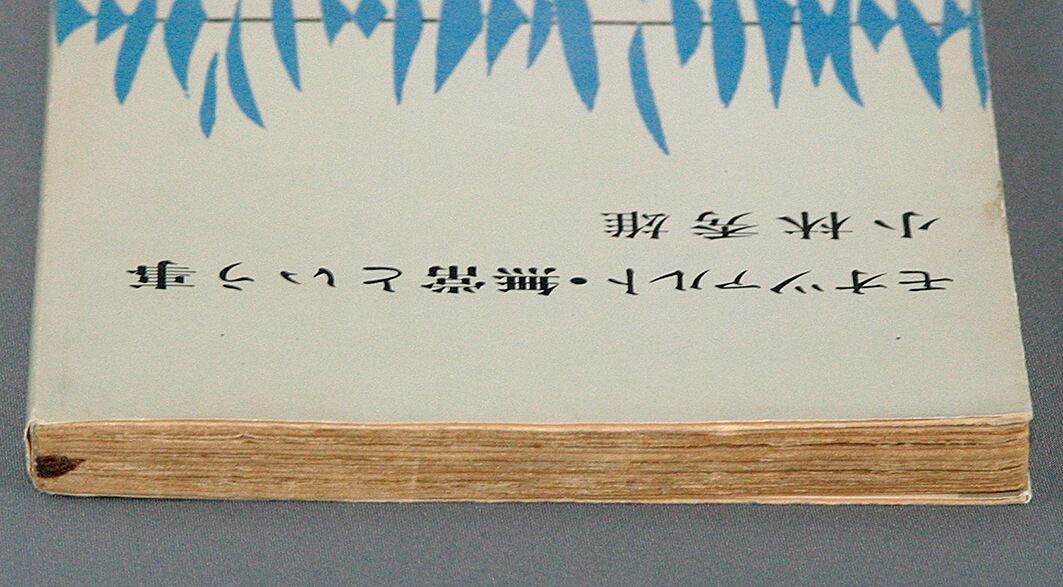 モオツァルト・無常という事
小林秀雄